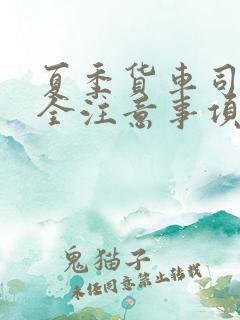 夏季货车司
全注意事项
鬼猫子
未经同意禁止转载